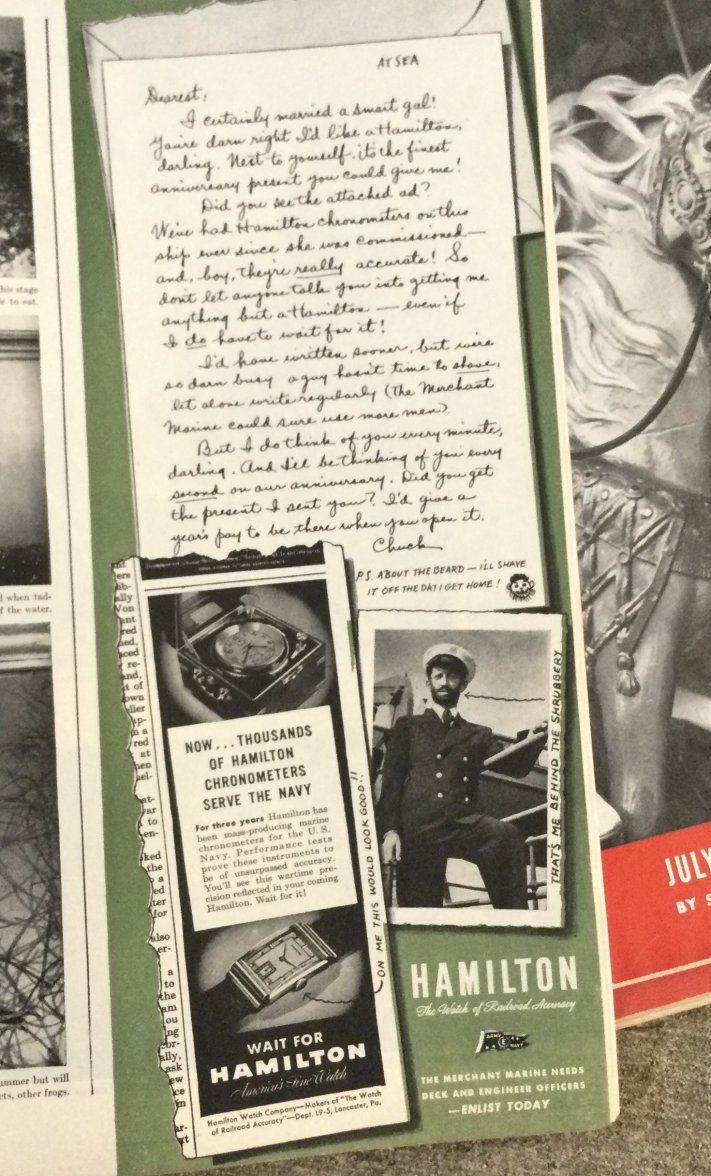 his stage
e to eat.
d when tad-
f the water.
ummer but will
ets, other frogs.
AT SEA
Dearest:
I certainly married a smart gal!
You're darn right I'd like a Hamilton,
darling. Next to yourself, it's the finest
anniversary present you could give me!
Did you see the attached ad?
We've had Hamilton chronometers on this
ship ever since she was commissioned—
and, boy, they're really accurate! So
don't let anyone talk you into getting me
anything but a Hamilton — even if
I do have to wait for it!
I'd have written sooner, but we're
so darn busy a guy hasn't time to shave,
let alone write regularly (The Merchant
Marine could sure use more men).
But I do think of you every minute,
darling. And I'll be thinking of you every
second on our anniversary. Did you get
the present I sent you? I'd give a
year's pay to be there when you open it.
Chuck
P.S. ABOUT THE BEARD — I'LL SHAVE
IT OFF THE DAY I GET HOME!
NOW...THOUSANDS
OF HAMILTON
CHRONOMETERS
SERVE THE NAVY
For three years Hamilton has
been mass-producing marine
chronometers for the U. S.
Navy. Performance tests
prove these instruments to
be of unsurpassed accuracy.
You'll see this wartime pre-
cision reflected in your coming
Hamilton. Wait for it!
ON ME THIS WOULD LOOK GOOD!!
WAIT FOR
HAMILTON
America's Fine Watch
Hamilton Watch Company—Makers of "The Watch
of Railroad Accuracy"—Dept. L9-5, Lancaster, Pa.
THAT'S ME BEHIND THE SHRUBBERY
HAMILTON
The Watch of Railroad Accuracy
ARMY E NAVY
THE MERCHANT MARINE NEEDS
DECK AND ENGINEER OFFICERS
—ENLIST TODAY
JULY
BY S